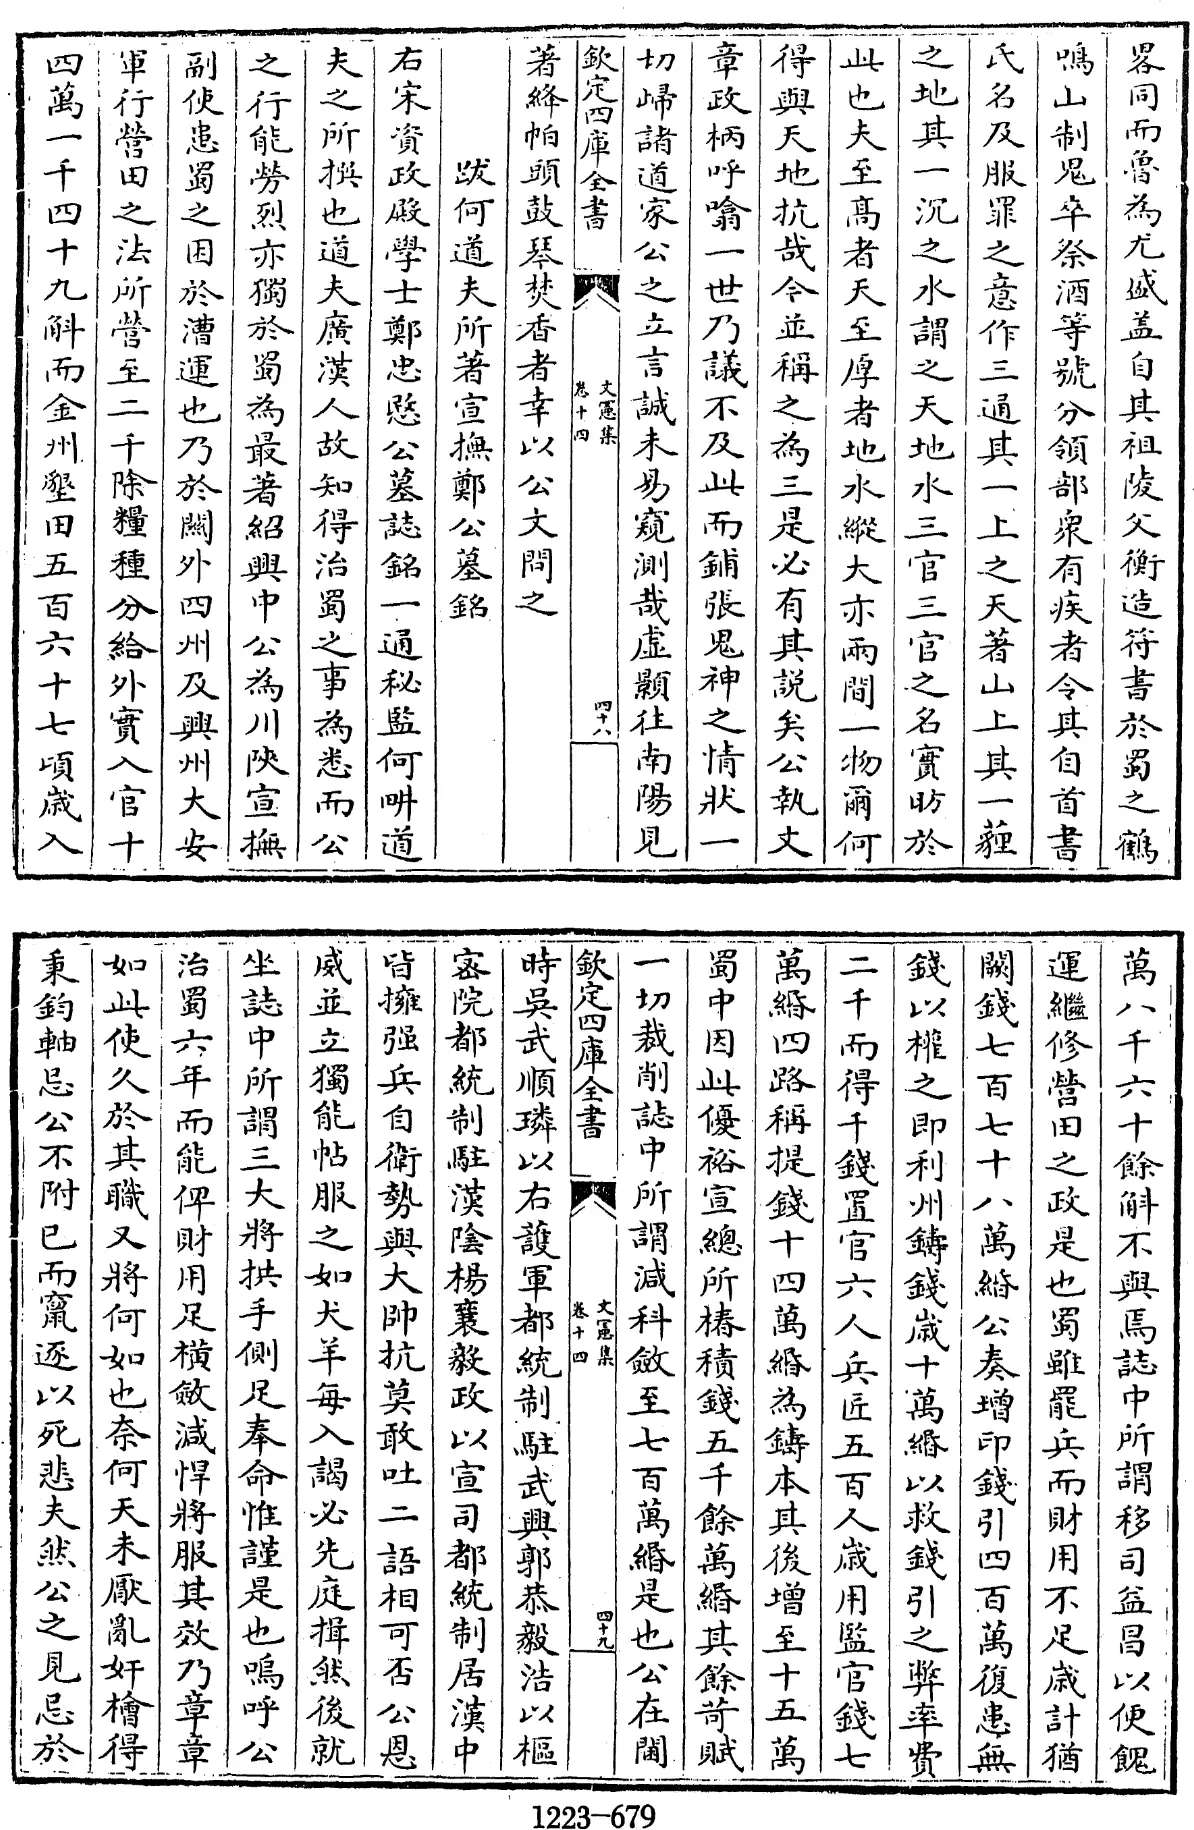 畧同而魯為尤盛葢自其祖陵父衡造符書於蜀之鶴
鳴山制鬼卒祭酒等號分領部衆有疾者令其自首書
氏名及服罪之意作三通其一上之天著山上其一薶
之地其一沉之水謂之天地水三官三官之名實昉於
此也夫至髙者天至厚者地水縱大亦兩間一物爾何
得與天地抗哉今並稱之為三是必有其説矣公執文
章政柄呼噏一世乃議不及此而鋪張鬼神之情狀一
切歸諸道家公之立言誠未易窺測哉虚顥往南陽見
欽定四庫全書
文憲集
卷十四
四十八
著絳帕頭鼓琴焚香者幸以公文問之
跋何道夫所著宣撫鄭公墓銘
右宋資政殿學士鄭忠愍公墓誌銘一通秘監何畊道
夫之所撰也道夫廣漢人故知得治蜀之事為悉而公
之行能勞烈亦獨於蜀為最著紹興中公為川陜宣撫
副使患蜀之困於漕運也乃於關外四州及興州大安
軍行營田之法所營至二千除糧種分給外實入官十
四萬一千四十九斛而金州墾田五百六十七頃歲入
萬八千六十餘斛不與焉誌中所謂移司益昌以便餽
運繼修營田之政是也蜀雖罷兵而財用不足歲計猶
闕錢七百七十八萬緡公奏增印錢引四百萬復患無
錢以榷之即利州鑄錢歲十萬緡以救錢引之弊率費
二千而得千錢置官六人兵匠五百人歲用監官錢七
萬緡四路稱提錢十四萬緡為鑄本其後增至十五萬
蜀中因此優裕宣總所樁積錢五千餘萬緡其餘苛賦
一切裁削誌中所謂減科斂至七百萬緡是也公在閫
欽定四庫全書
文憲集
卷十四
四十九
時吳武順璘以右護軍都統制駐武興郭恭毅浩以樞
密院都統制駐漢陰楊襄毅政以宣司都統制居漢中
皆擁强兵自衛勢與大帥抗莫敢吐二語相可否公恩
威並立獨能帖服之如犬羊每入謁必先庭揖然後就
坐誌中所謂三大將拱手側足奉命惟謹是也嗚呼公
治蜀六年而能俾財用足横斂減悍將服其效乃章章
如此使久於其職又將何如也奈何天未厭亂奸檜得
秉鈞軸忌公不附已而竄逐以死悲夫然公之見忌於
1223-679